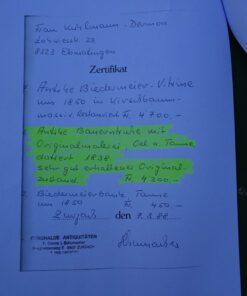 Frau Kuhlmann - Dermon
8123 Ebmatingen
Zertifikat
Antike Biedermeier - Vitrine
um 1850 in Kirschbaum-
massiv, restauriert Fr. 4'700.-
Antike Bauerntruhe mit
Originalmalerei Oel a. Tanne
datiert 1838
sehr gut erhaltener Original-
zustand Fr. 4'200.-
2 Biedermeierbänke, Tanne
um 1850 Fr. 450.-
den 9.3.88
ANTIQUITÄTEN